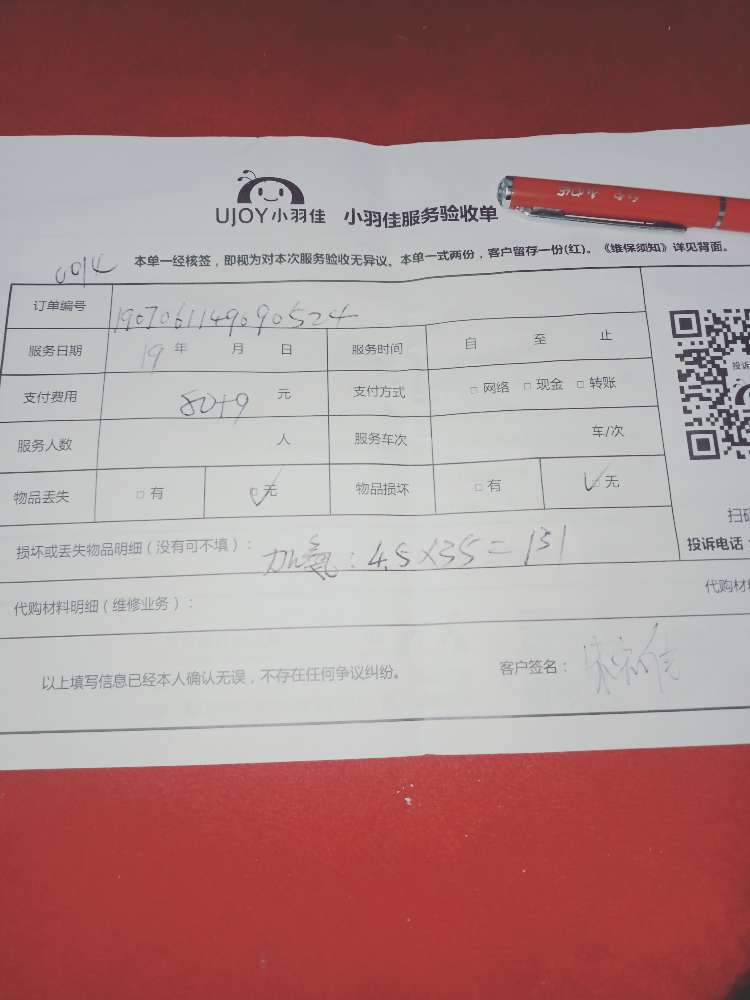 UJOY小羽佳 小羽佳服务验收单
0014
本单一经核签，即视为对本次服务验收无异议。本单一式两份，客户留存一份(红)。《维保须知》详见背面。
订单编号 1907061149090524
服务日期 19年 月 日 服务时间 自 至 止
投诉
支付费用 80+9 元 支付方式 □ 网络 □ 现金 □ 转账
服务人数 人 服务车次 车/次
物品丢失 □ 有 ☑ 无 物品损坏 □ 有 ☑ 无
扫码
损坏或丢失物品明细（没有可不填）： 加氟：4.5×35=131
投诉电话：
代购材料明细（维修业务）： 代购材料
以上填写信息已经本人确认无误，不存在任何争议纠纷。 客户签名：